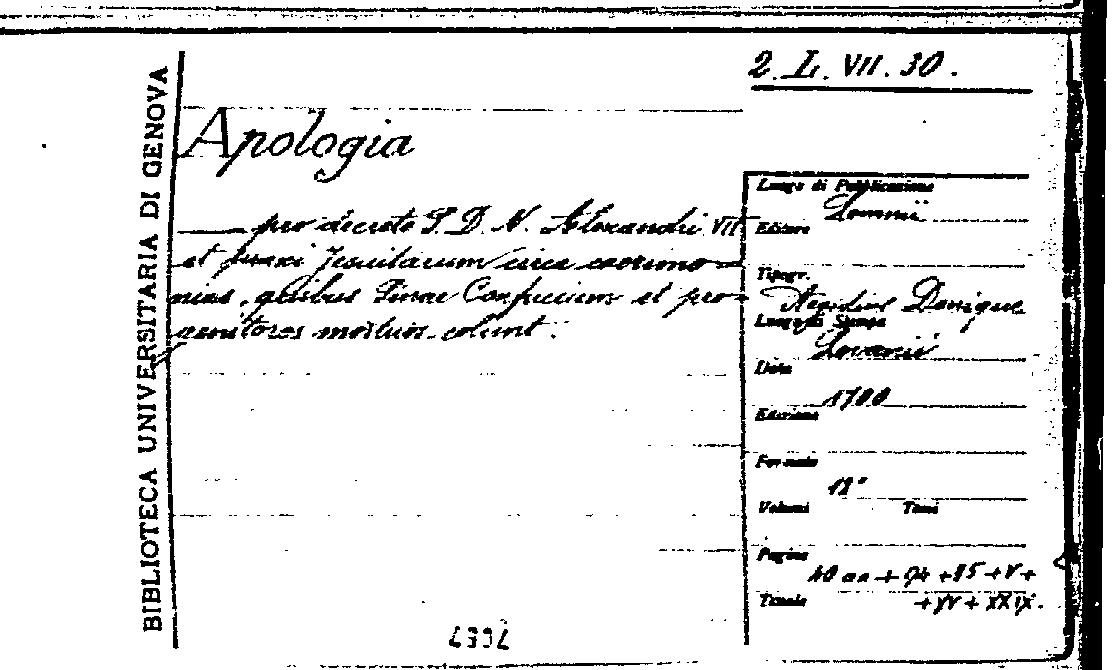 BIBLIOTECA UNIVERSITARIA DI GENOVA
2. L. VII. 30.
Apologia
pro decreto S. D. N. Alexandri VII
et praxi Jesuitarum circa caerimo-
nias, quibus Sinae Confucium et pro-
genitores mortuos colunt.
Luogo di Pubblicazione
Editore
Tipogr.
Aegidius Denique
Luogo di Stampa
Lovanii
Data
1700
Edizione
Formato
12°
Volumi Tomi
Pagine
10 nn + 94 + 85 + V +
+ XV + XXIX.
Tavole